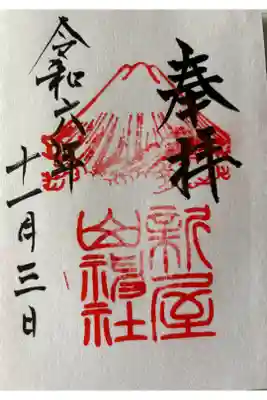 奉拝
新屋
山神社
令和六年
十一月三日